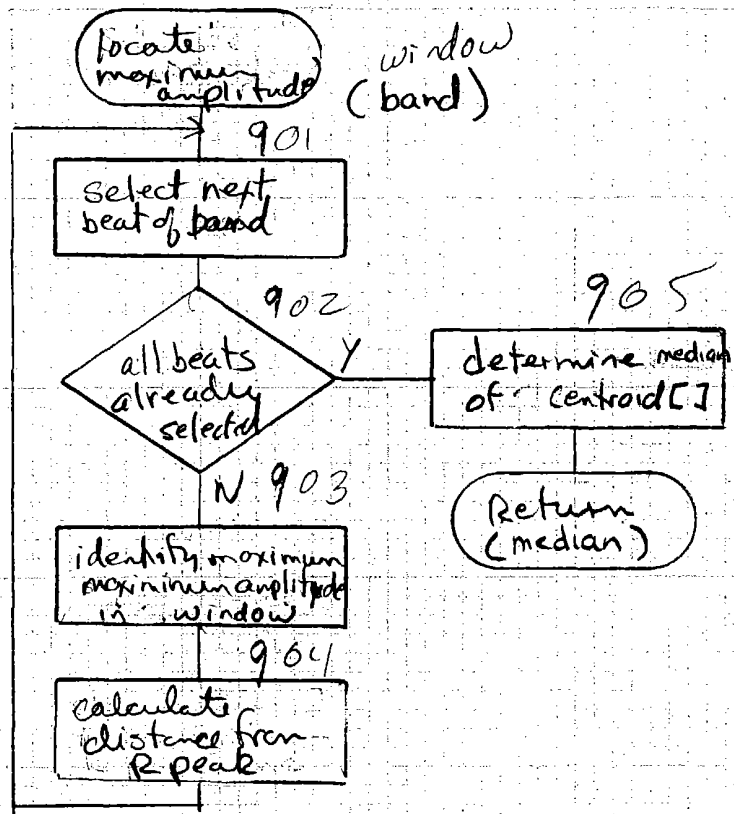 locate
maximum
amplitude
window
(band)
901
select next
beat of band
902
all beats
already
selected
Y
905
determine median
of centroid[]
Return
(median)
N 903
identify maximum
maximinum amplitude
in window
904
calculate
distance from
R peak